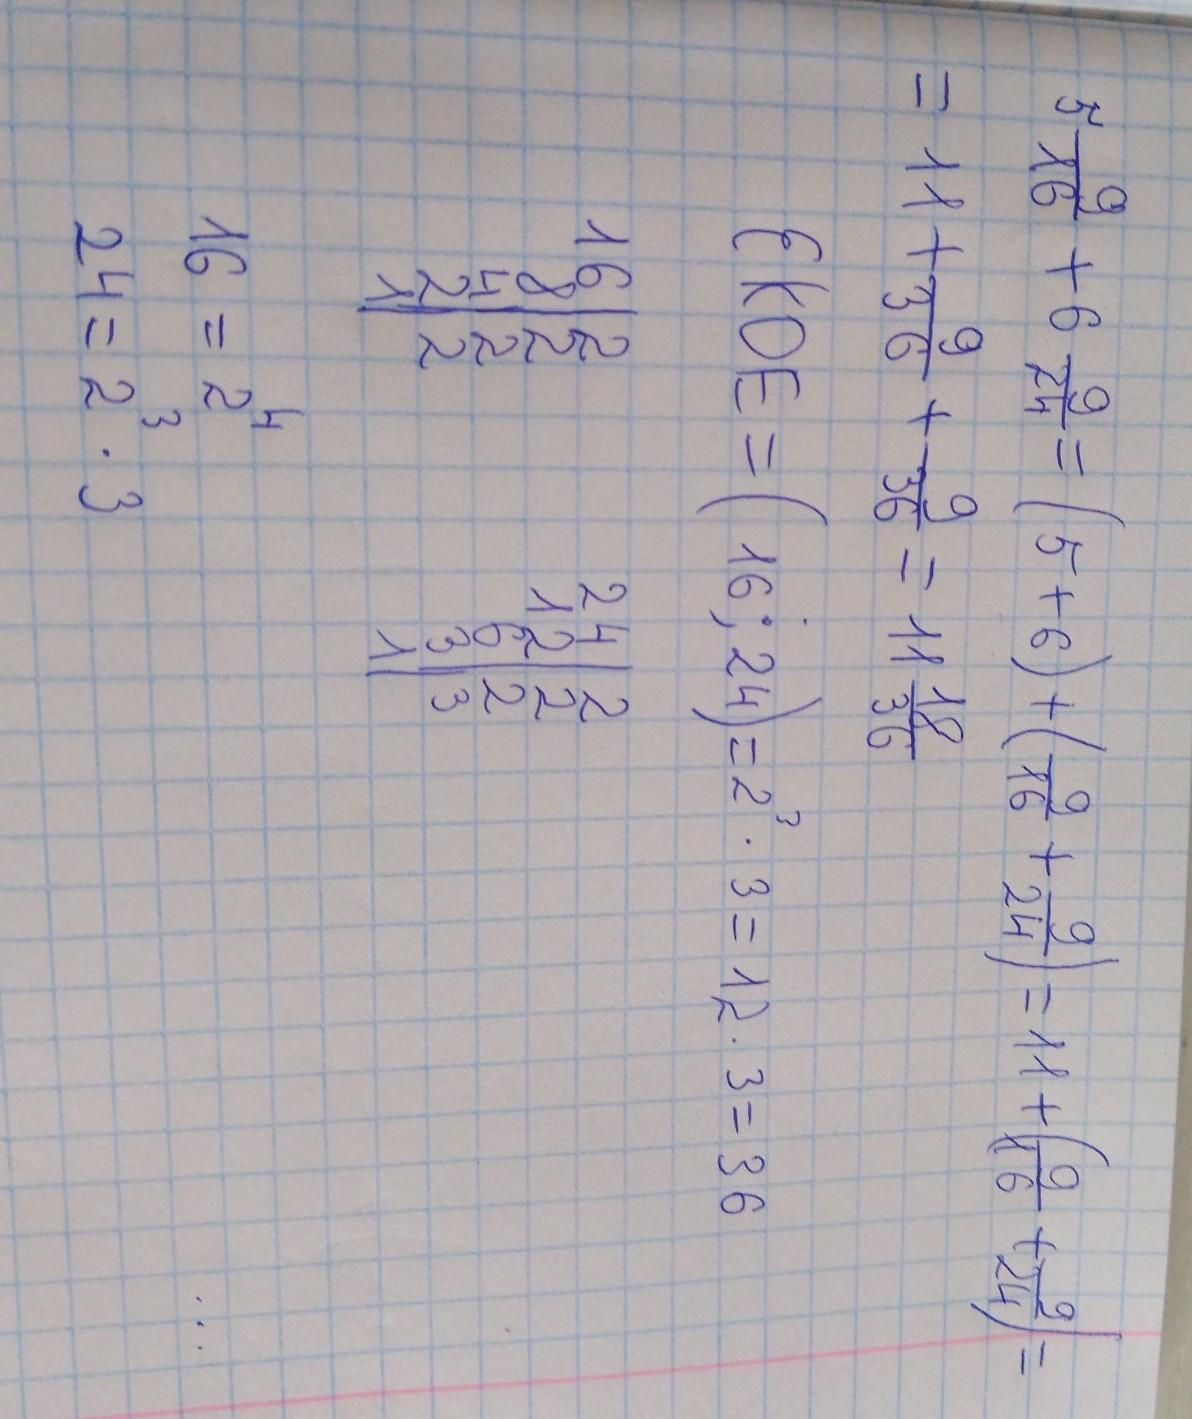 5 9/16 + 6 9/24 = (5+6) + (9/16 + 9/24) = 11 + (9/16 + 9/24) =
= 11 + 9/36 + 9/36 = 11 18/36
EKOE = (16; 24) = 2³ · 3 = 12 · 3 = 36
16|2 24|2
8|2 12|2
4|2 6|2
2|2 3|3
1| 1|
16 = 2⁴
24 = 2³ · 3